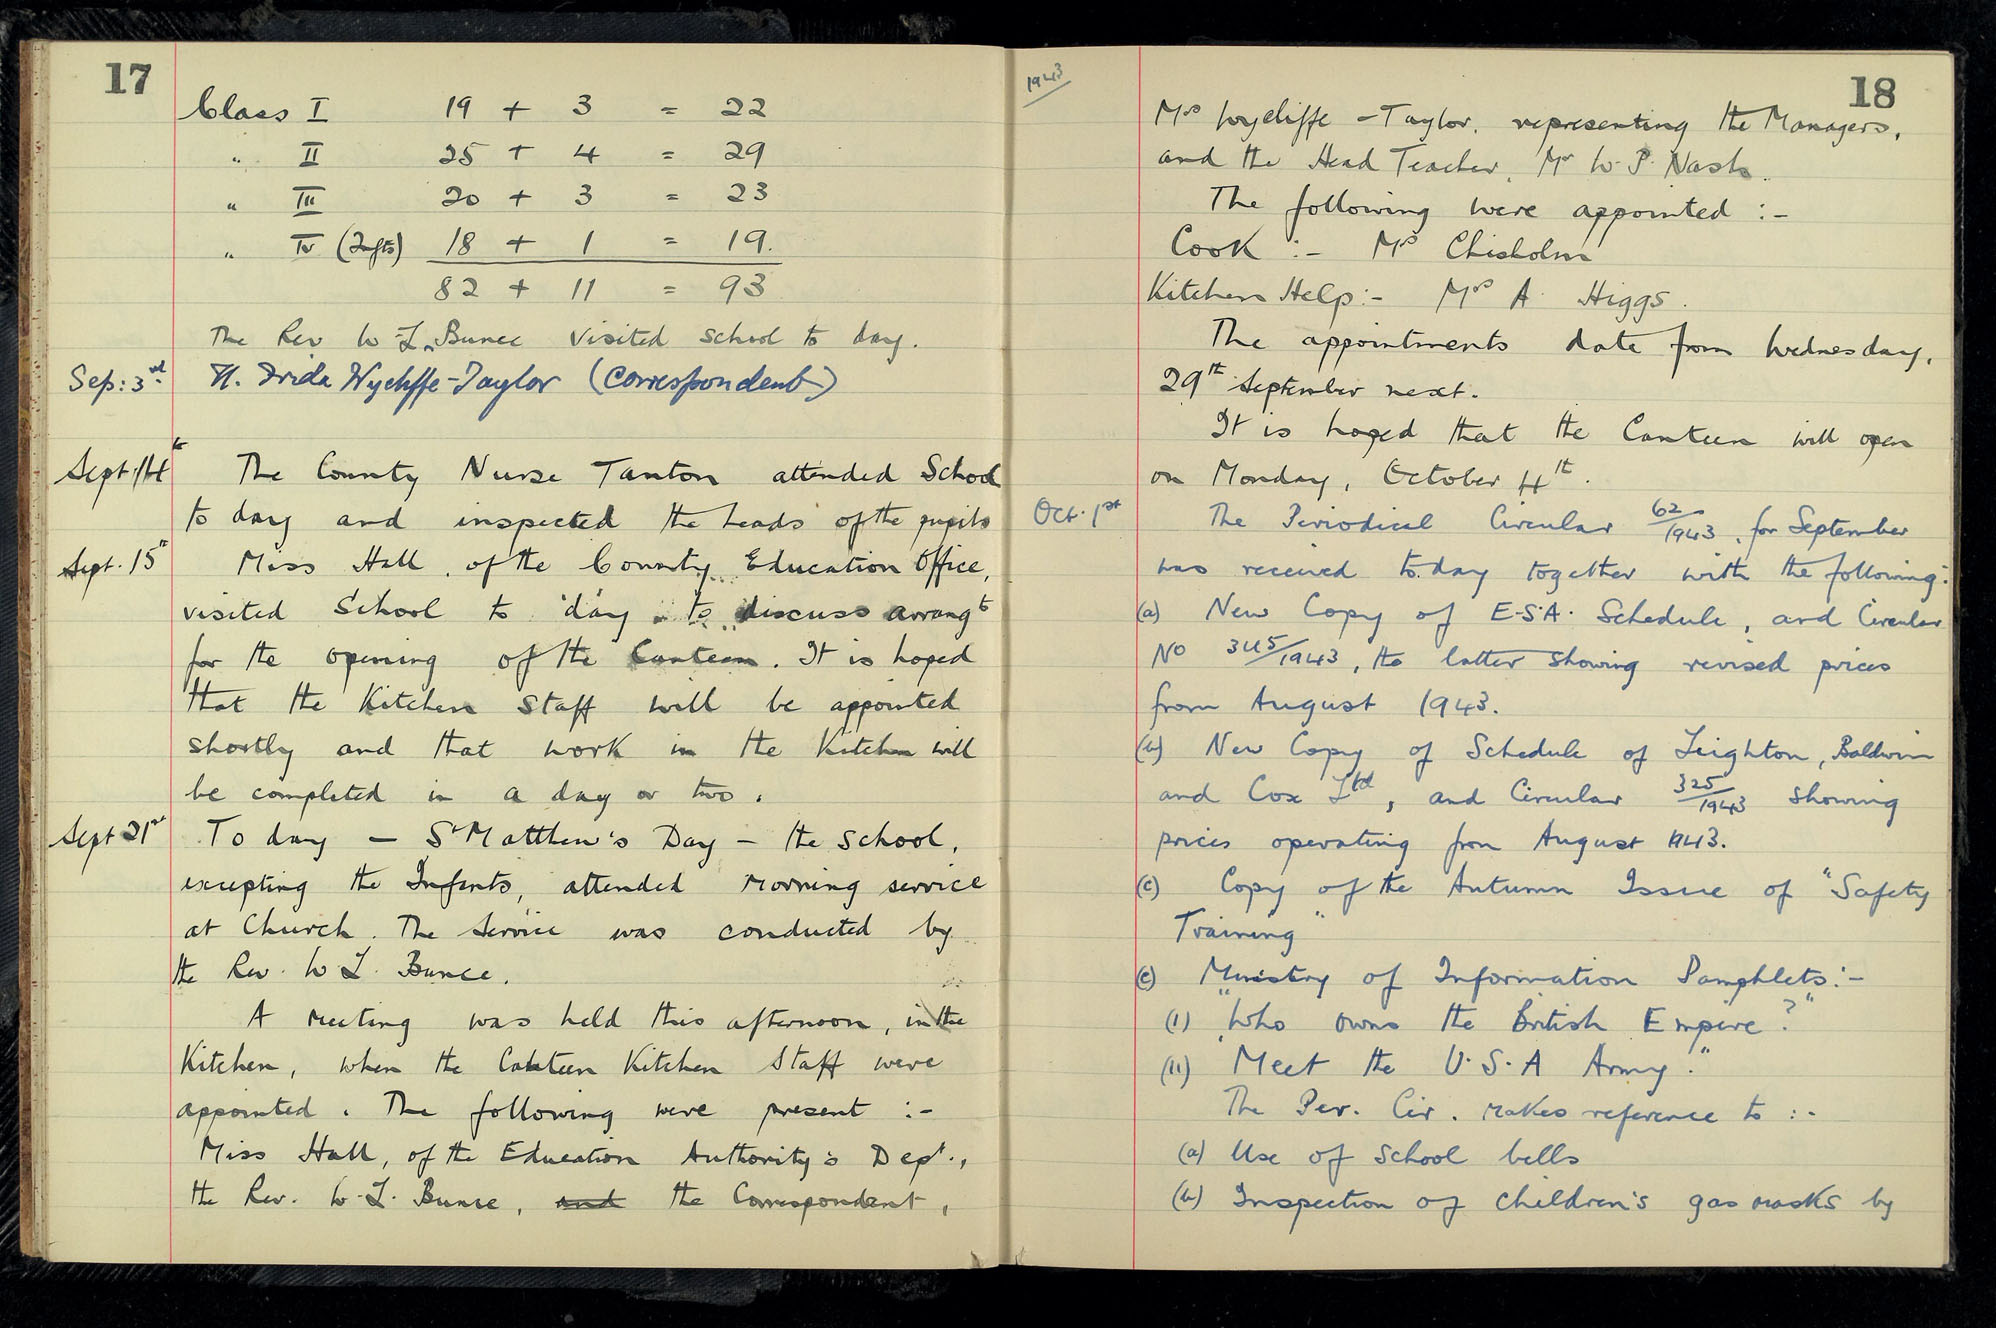 17
Class I 19 + 3 = 22
" II 25 + 4 = 29
" III 20 + 3 = 23
" IV (Infts) 18 + 1 = 19.
82 + 11 = 93
The Rev W L. Bunce visited school to day.
Sep: 3rd. H. Frida Wycliffe-Taylor (Correspondent)
Sept. 14th The County Nurse Tanton attended School
to day and inspected the heads of the pupils
Sept. 15th Miss Hall, of the County Education Office,
visited School to day to discuss arrangts
for the opening of the Canteen. It is hoped
that the Kitchen Staff will be appointed
shortly and that work in the Kitchen will
be completed in a day or two.
Sept 21st To day — St Matthew's Day — the school,
excepting the Infants, attended morning service
at Church. The service was conducted by
the Rev. W L. Bunce.
A meeting was held this afternoon, in the
Kitchen, when the Canteen Kitchen Staff were
appointed. The following were present :-
Miss Hall, of the Education Authority's Dept.,
the Rev. W. L. Bunce, and the Correspondent,
1943
18
Mrs Wycliffe-Taylor, representing the Managers,
and the Head Teacher, Mr W. P. Nash.
The following were appointed :-
Cook :- Mrs Chisholm
Kitchen Help:- Mrs A. Higgs.
The appointments date from Wednesday,
29th September next.
It is hoped that the Canteen will open
on Monday, October 4th.
Oct. 1st The Periodical Circular 62/1943, for September
was received to.day together with the following:-
(a) New Copy of E.S.A. Schedule, and Circular
No 345/1943, the latter showing revised prices
from August 1943.
(b) New Copy of Schedule of Leighton, Baldwin
and Cox Ltd, and Circular 325/1943 showing
prices operating from August 1943.
(c) Copy of the Autumn Issue of "Safety
Training"
(e) Ministry of Information Pamphlets:-
(i) "Who owns the British Empire?"
(ii) "Meet the U.S.A Army."
The Per. Cir. makes reference to :-
(a) Use of School bells
(b) Inspection of children's gas masks by